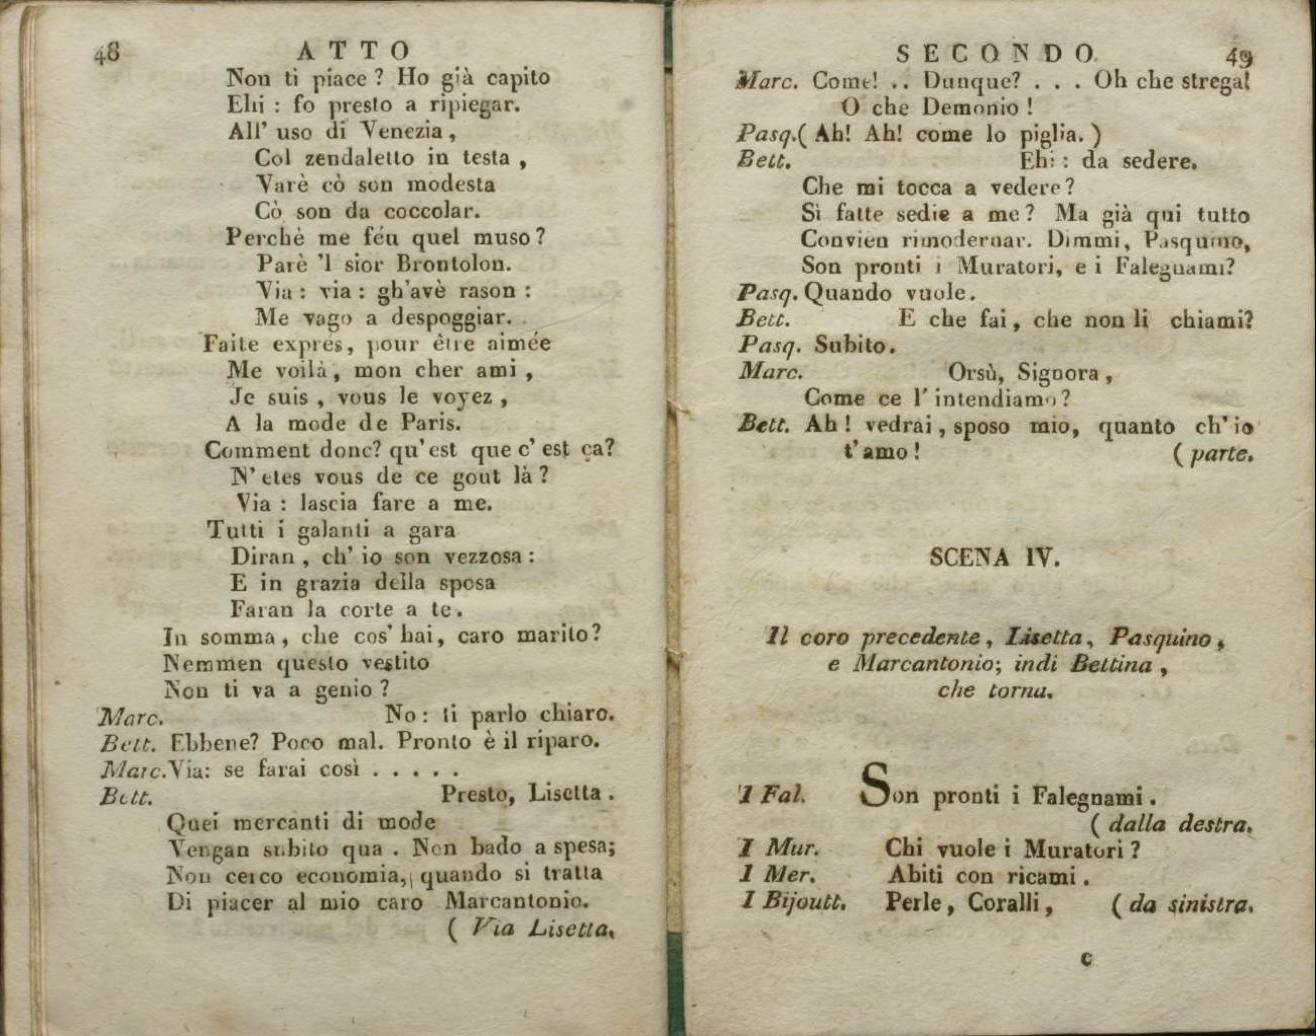 48
ATTO
Non ti piace? Ho già capito
Ehi: fo presto a ripiegar.
All' uso di Venezia,
Col zendaletto in testa,
Varè cò son modesta
Cò son da coccolar.
Perchè me féu quel muso?
Parè 'l sior Brontolon.
Via: via: gh'avè rason:
Me vago a despoggiar.
Faite exprés, pour être aimée
Me voilà, mon cher ami,
Je suis, vous le voyez,
A la mode de Paris.
Comment donc? qu'est que c' est ça?
N' etes vous de ce gout là?
Via: lascia fare a me.
Tutti i galanti a gara
Diran, ch' io son vezzosa:
E in grazia della sposa
Faran la corte a te.
In somma, che cos' hai, caro marito?
Nemmen questo vestito
Non ti va a genio?
Marc. No: ti parlo chiaro.
Bett. Ebbene? Poco mal. Pronto è il riparo.
Marc. Via: se farai così . . . . .
Bett. Presto, Lisetta.
Quei mercanti di mode
Vengan subito qua. Non bado a spesa;
Non cerco economia, quando si tratta
Di piacer al mio caro Marcantonio.
( Via Lisetta.
SECONDO. 49
Marc. Come! .. Dunque? . . . Oh che strega!
O che Demonio!
Pasq. ( Ah! Ah! come lo piglia. )
Bett. Ehi: da sedere.
Che mi tocca a vedere?
Sì fatte sedie a me? Ma già qui tutto
Convien rimodernar. Dimmi, Pasquino,
Son pronti i Muratori, e i Falegnami?
Pasq. Quando vuole.
Bett. E che fai, che non li chiami?
Pasq. Subito.
Marc. Orsù, Signora,
Come ce l' intendiamo?
Bett. Ah! vedrai, sposo mio, quanto ch' io
t'amo! ( parte.
SCENA IV.
Il coro precedente, Lisetta, Pasquino,
e Marcantonio; indi Bettina,
che torna.
1 Fal. Son pronti i Falegnami.
( dalla destra.
1 Mur. Chi vuole i Muratori?
1 Mer. Abiti con ricami.
1 Bijoutt. Perle, Coralli, ( da sinistra.
c